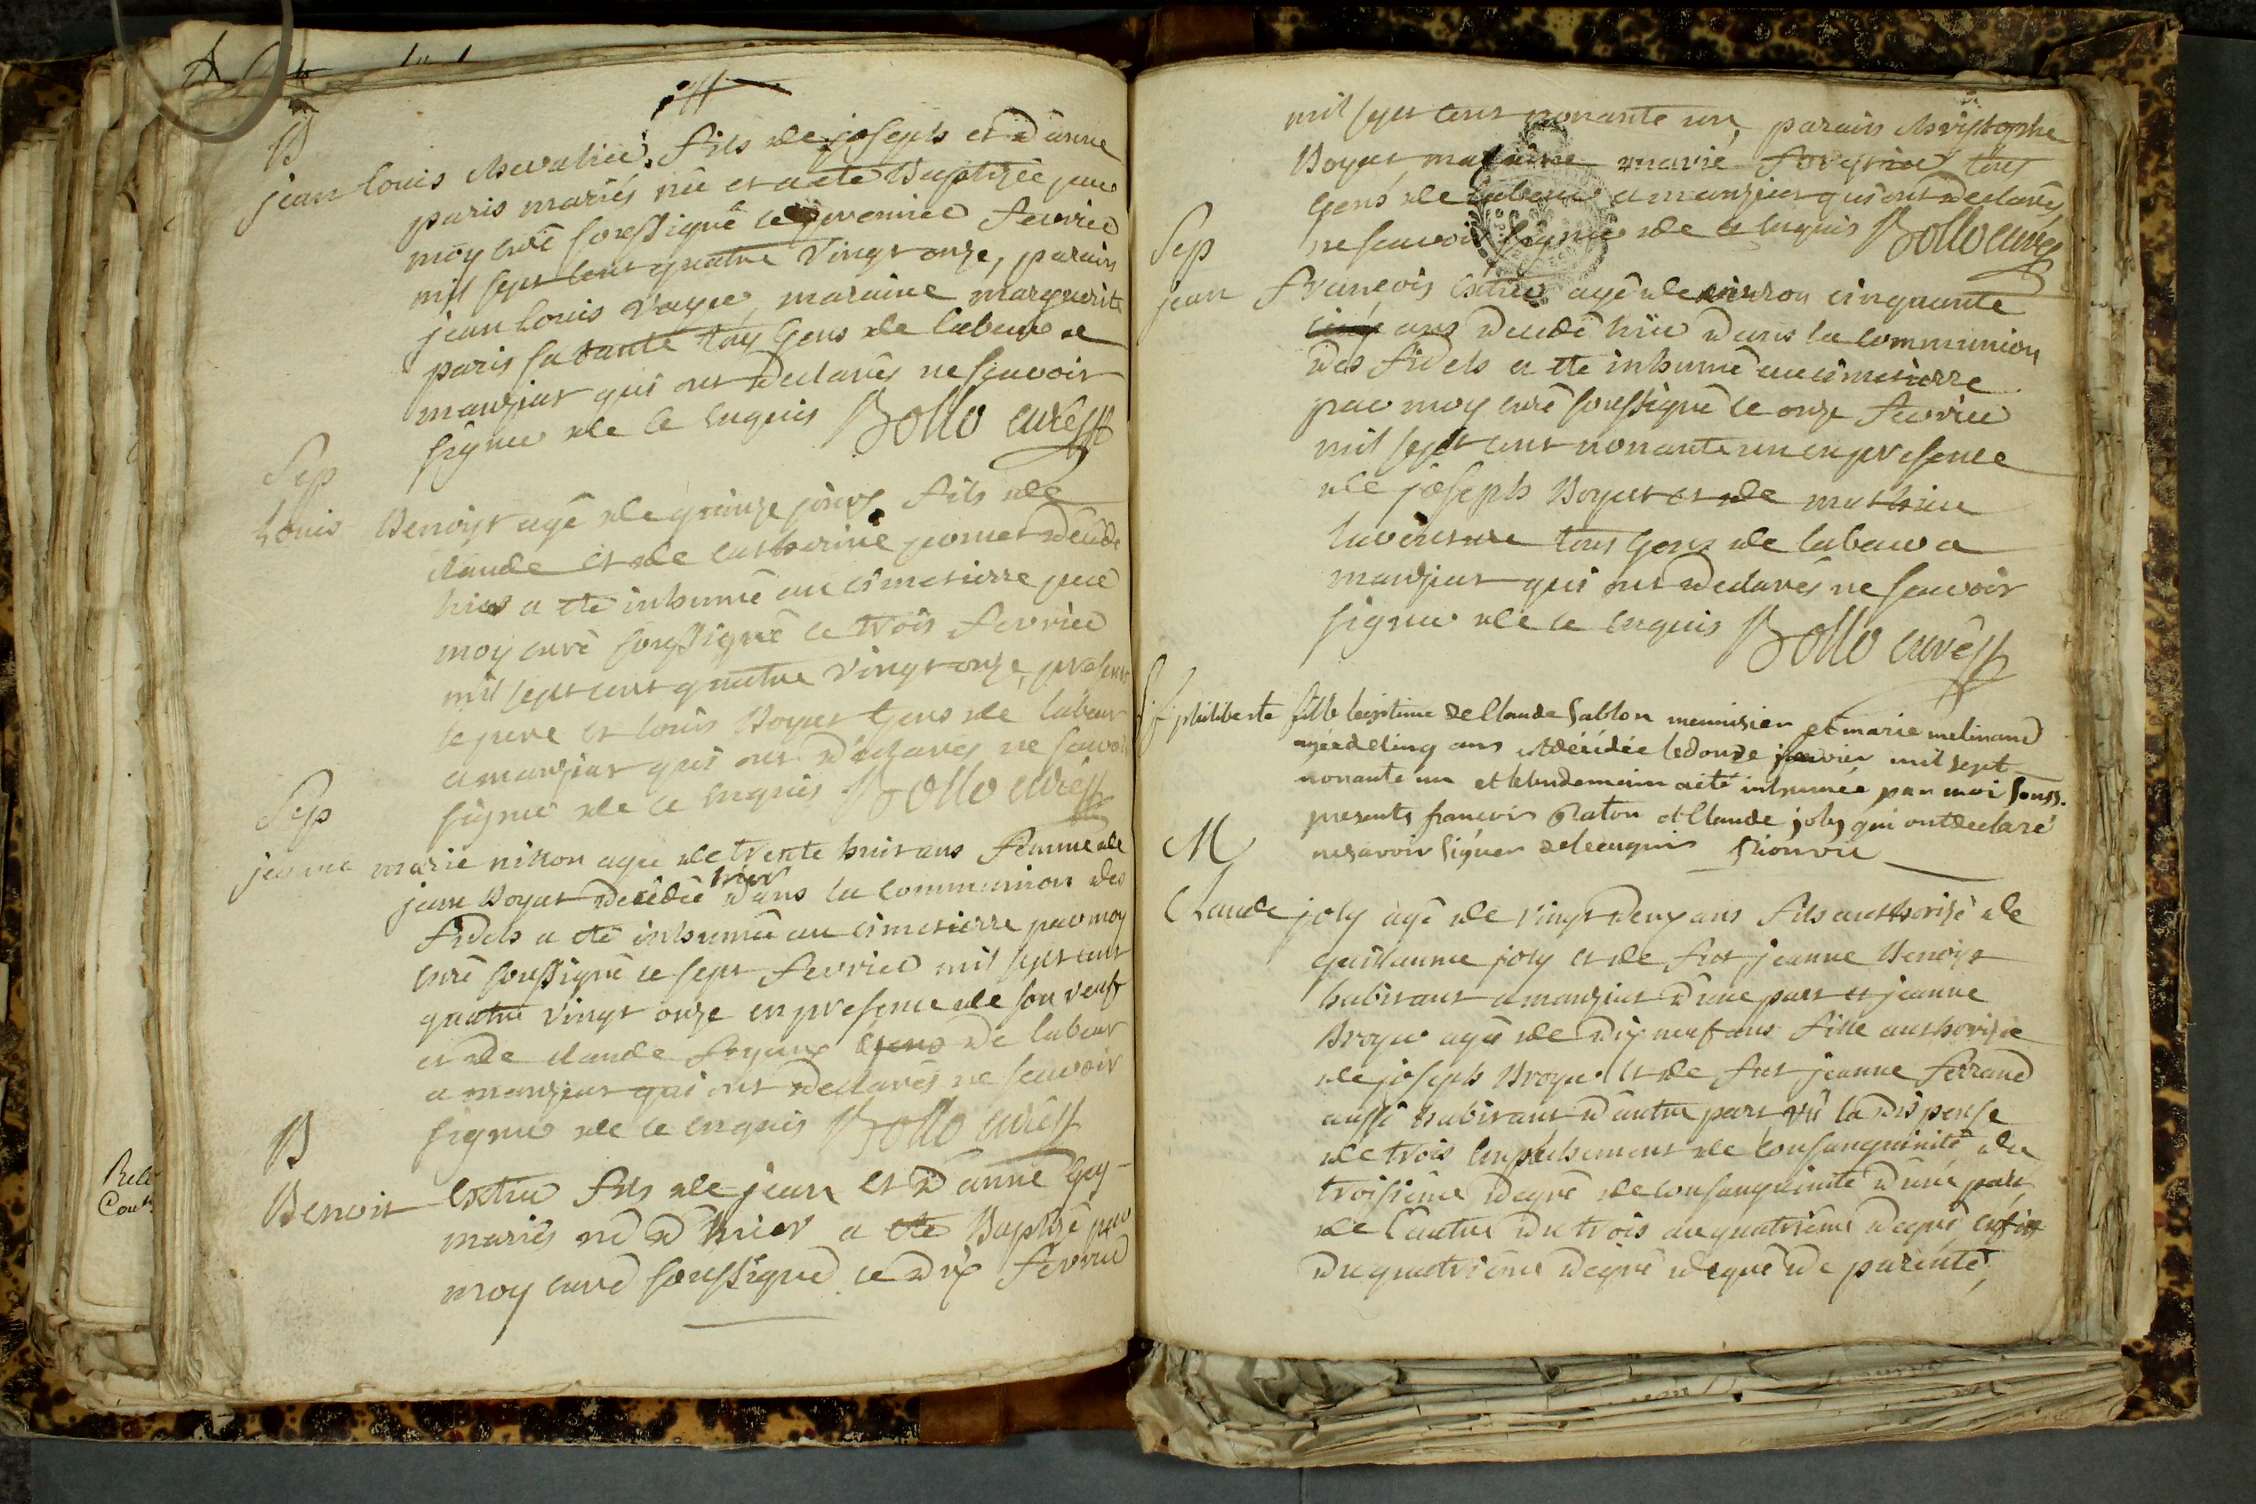 B
jean louis chevalier fils de joseph et d'anne
paris mariés née et a ete Baptizée par
moy curé soussigné le premier fevrier
mil sept cent quatre vingt onze, parain
jean louis Voyer, maraine marguerite
paris sa tante tous gens de labeur a
manziat qui ont declarés ne scavoir
signer de ce enquis Bollo curé
Sep
Louis Benoist agé de quinze jours fils de
claude et de catherine decédé
hier a été inhumé au cimetierre par
moy curé soussigné ce trois fevrier
mil sept cent quatre vingt onze, presents
le pere et louis Boyat gens de labeur
a manziat qui ont déclarés ne scavoir
signer de ce enquis Bollo curé
Sep
jeanne marie nizon agée de trente huit ans femme de
jean Boyat decédée hier dans la communion des
fidels a été inhumée au cimetierre par moy
curé soussigné ce sept fevrier mil sept cent
quatre vingt onze en presence de son veuf
et de claude gens de labeur
a manziat qui ont declarés ne scavoir
signer de ce enquis Bollo curé
B
Benoit fils de jean et d'anne
mariés né d'hier a été Baptizé par
moy curé soussigné ce dix fevrier
mil sept cent nonante un, parain christophe
Boyat maraine marie tous
gens de labeur a manziat qui ont declarés
ne scavoir signer de ce enquis Bollo curé
Sep
jean François agé de environ cinquante
ans decedé hier dans la communion
des fidels a été inhumé au cimetierre
par moy curé soussigné ce onze fevrier
mil sept cent nonante un en presence
de joseph Boyat et de mathieu
tous gens de labeur a
manziat qui ont declarés ne scavoir
signer de ce enquis Bollo curé
philiberte fille legitime de Claude Sablon menuisier et marie melinand
agée de cinq ans est décédée le douze fevrier mil sept
nonante un et le lendemain a été inhumée par moi souss.
presents francois Raton et Claude joly qui ont declaré
ne savoir signer de ce enquis
M
Claude joly agé de vingt deux ans fils authorisé de
guillaume joly et de jeanne Benoist
habitant a manziat d'une part et jeanne
Broyer agée de dix neuf ans fille authorisée
de joseph Broyer et de jeanne Ferrand
aussi habitant d'autre part vû la dispense
de trois empechement de consanguinité du
troisième degré de consanguinité d'une part
de l'autre du trois au quatrième degré enfin
du quatrième degré degré de parenté,